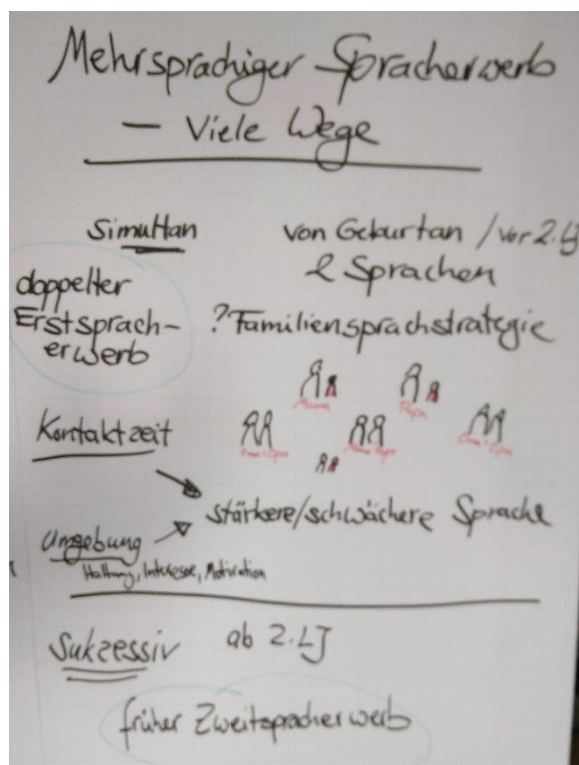 Mehrsprachiger Spracherwerb
— Viele Wege
Simultan von Geburt an / vor 2. LJ
2 Sprachen
doppelter
Erstsprach-
erwerb
? Familiensprachstrategie
Mama
Papa
Kontaktzeit
Oma + Opa
Oma + Opa
stärkere/schwächere Sprache
Umgebung
Haltung, Interesse, Motivation
Sukzessiv ab 2. LJ
früher Zweitspracherwerb